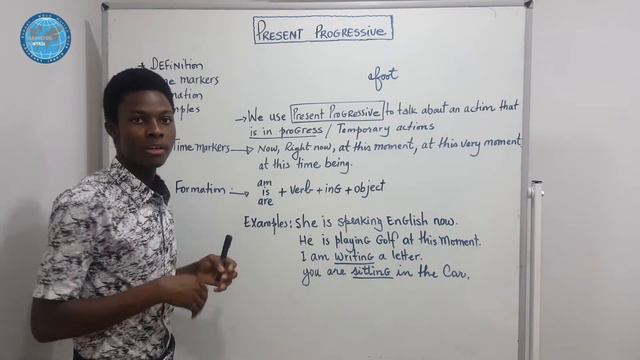 PRESENT PROGRESSIVE
DEFINITION
me markers
mation
mples
afoot
→ We use Present Progressive to talk about an action that
is in progress / Temporary actions
Time markers → Now, Right now, at this moment, at this very moment
at this time being.
Formation: → am
is
are
+ verb + ing + object
Examples: She is speaking English now.
He is playing Golf at this moment.
I am writing a letter.
you are sitting in the Car.